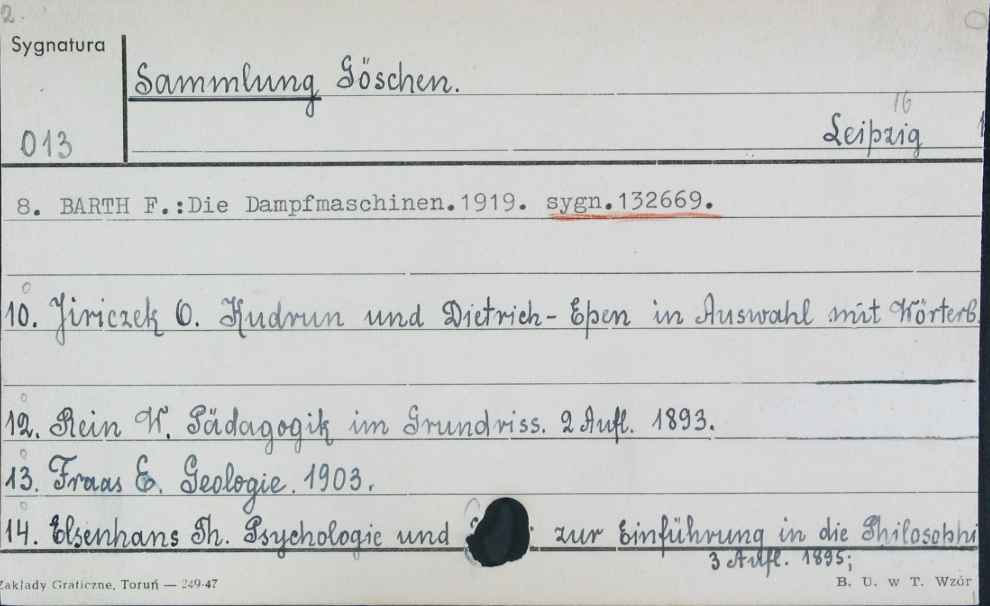 2.
Sygnatura
Sammlung Göschen.
16
013
Leipzig
8. BARTH F.:Die Dampfmaschinen.1919. sygn.132669.
10. Jiriczek O. Kudrun und Dietrich-Epen in Auswahl mit Wörterb.
12. Rein W. Pädagogik im Grundriss. 2 Aufl. 1893.
13. Fraas E. Geologie. 1903.
14. Elsenhans Th. Psychologie und zur Einführung in die Philosophi
3 Aufl. 1895;
Zakłady Graficzne, Toruń — 249-47
B. U. w T. Wzór